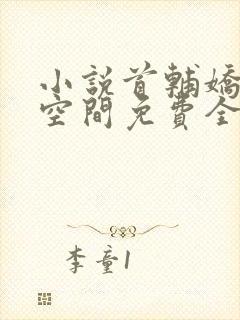 小說首輔嬌
空間免費全
李童1